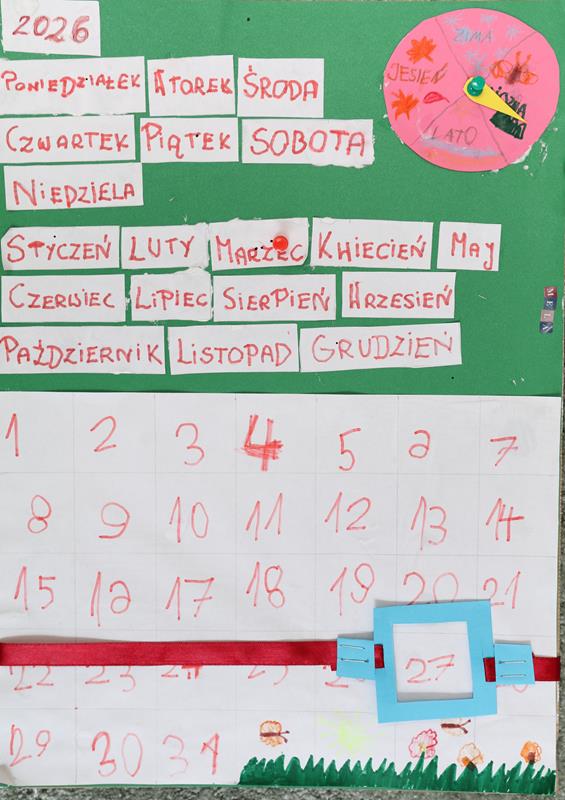 2026
ZIMA
JESIEŃ
LATO
PONIEDZIAŁEK WTOREK ŚRODA
CZWARTEK PIĄTEK SOBOTA
NIEDZIELA
STYCZEŃ LUTY MARZEC KWIECIEŃ MAJ
CZERWIEC LIPIEC SIERPIEŃ WRZESIEŃ
PAŹDZIERNIK LISTOPAD GRUDZIEŃ
1 2 3 4 5 6 7
8 9 10 11 12 13 14
15 16 17 18 19 20 21
22 23 24 25 27
29 30 31